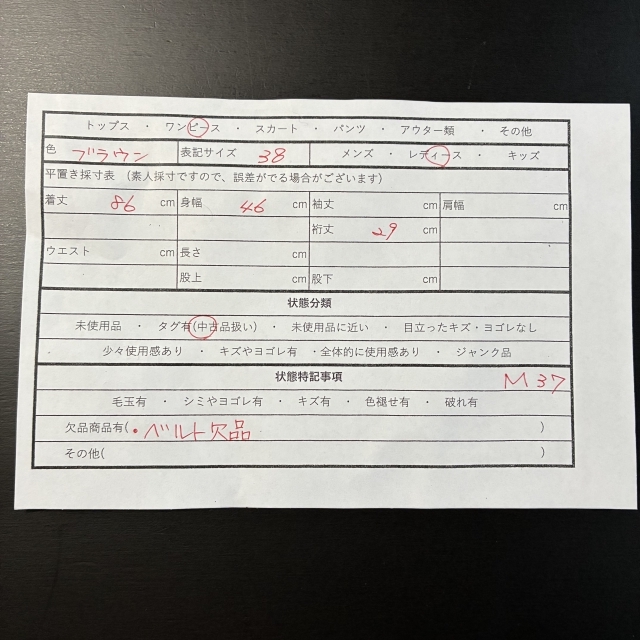 トップス ・ ワンピース ・ スカート ・ パンツ ・ アウター類 ・ その他
色 ブラウン 表記サイズ 38 メンズ ・ レディース ・ キッズ
平置き採寸表 (素人採寸ですので、誤差がでる場合がございます)
着丈 86 cm 身幅 46 cm 袖丈 cm 肩幅 cm
裄丈 29 cm
ウエスト cm 長さ cm
股上 cm 股下 cm
状態分類
未使用品 ・ タグ有(中古品扱い) ・ 未使用品に近い ・ 目立ったキズ・ヨゴレなし
少々使用感あり ・ キズやヨゴレ有 ・全体的に使用感あり ・ ジャンク品
状態特記事項 M 37
毛玉有 ・ シミやヨゴレ有 ・ キズ有 ・ 色褪せ有 ・ 破れ有
欠品商品有(・ベルト欠品 )
その他( )